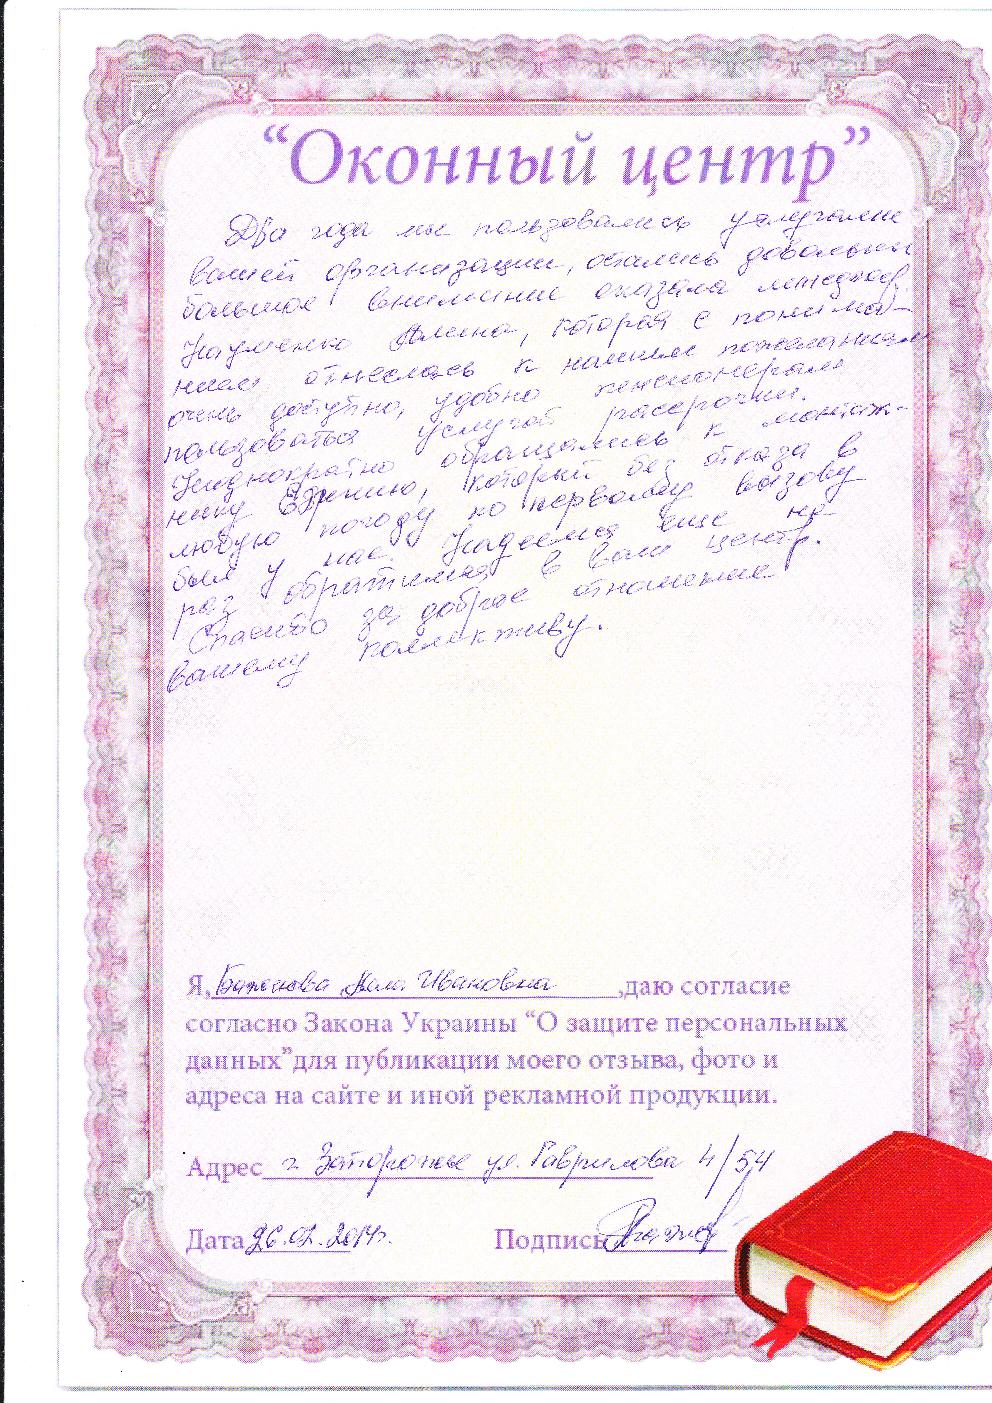 “Оконный центр”
Два года мы пользовались услугами
вашей организации, остались довольны
большое внимание оказала менеджер
Науменко Алина, которая с понима-
нием отнеслась к нашим пожеланиям
очень доступно, удобно пенсионерам
пользоваться услугой рассрочки.
Неоднократно обращались к монтаж-
нику, который без отказа в
любую погоду по первому вызову
был у нас. Надеемся еще не
раз обратимся в ваш центр.
Спасибо за доброе отношение
вашему коллективу.
Я, Баженова Алла Ивановна ,даю согласие
согласно Закона Украины “О защите персональных
данных”для публикации моего отзыва, фото и
адреса на сайте и иной рекламной продукции.
Адрес г. Запорожье ул. Гаврилова 4/54
Дата 26.02.2014г. Подпись